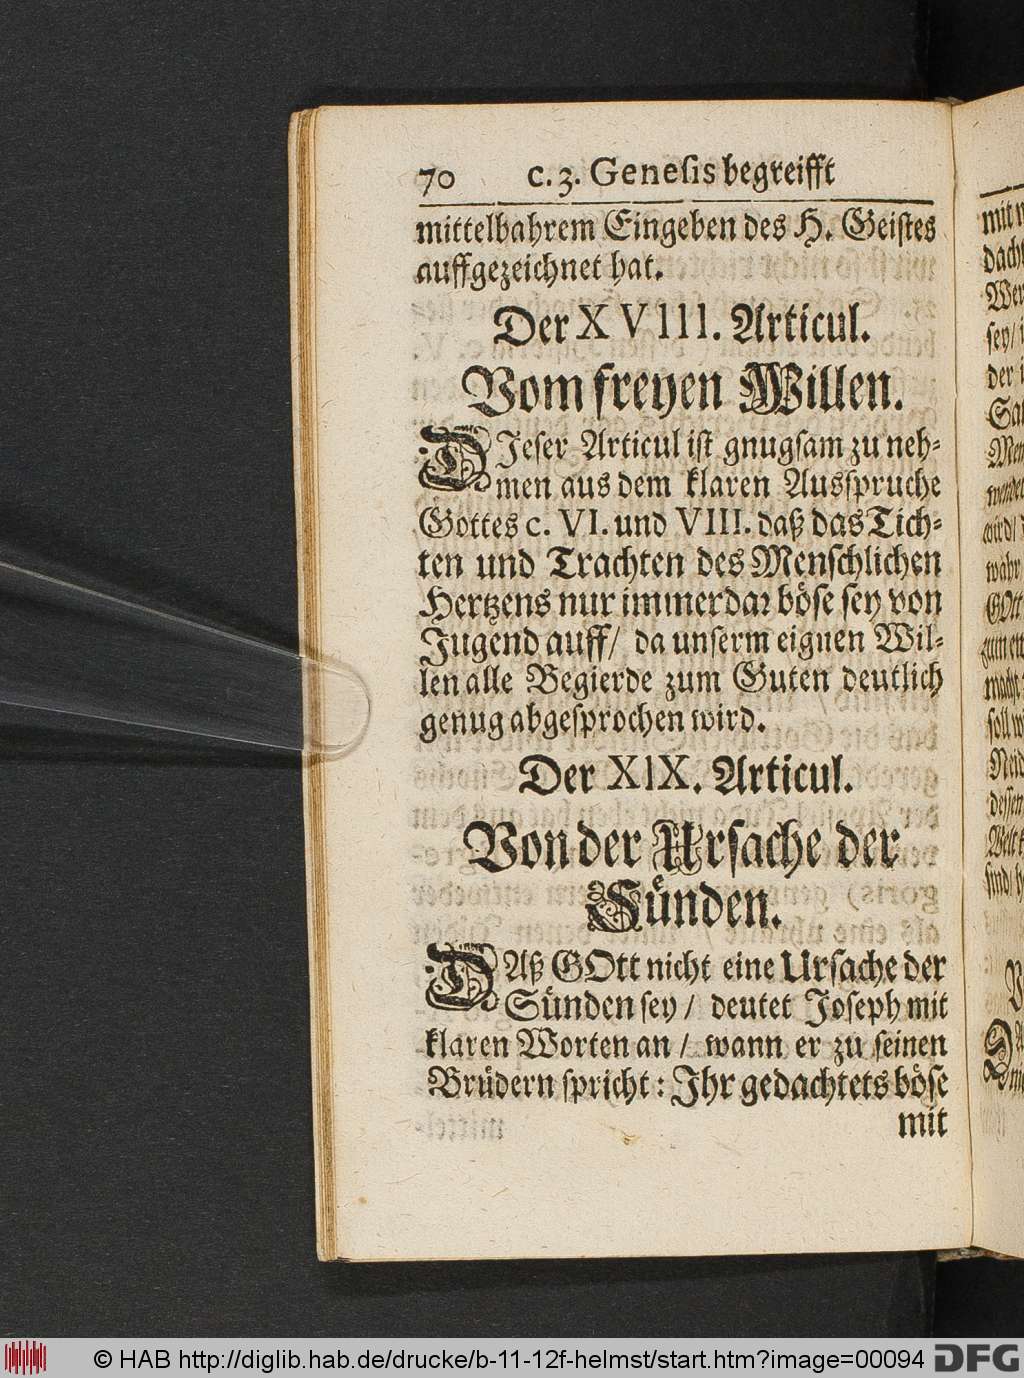 70 c. 3. Genesis begreifft
mittelbahrem Eingeben des H. Geistes
auffgezeichnet hat.
Der XVIII. Articul.
Vom freyen Willen.
DJeser Articul ist gnugsam zu neh-
men aus dem klaren Ausspruche
Gottes c. VI. und VIII. daß das Tich-
ten und Trachten des Menschlichen
Hertzens nur immerdar böse sey von
Jugend auff/ da unserm eignen Wil-
len alle Begierde zum Guten deutlich
genug abgesprochen wird.
Der XIX. Articul.
Von der Ursache der
Sünden.
DAß GOtt nicht eine Ursache der
Sünden sey/ deutet Joseph mit
klaren Worten an/ wann er zu seinen
Brüdern spricht: Jhr gedachtets böse
mit
© HAB http://diglib.hab.de/drucke/b-11-12f-helmst/start.htm?image=00094
DFG